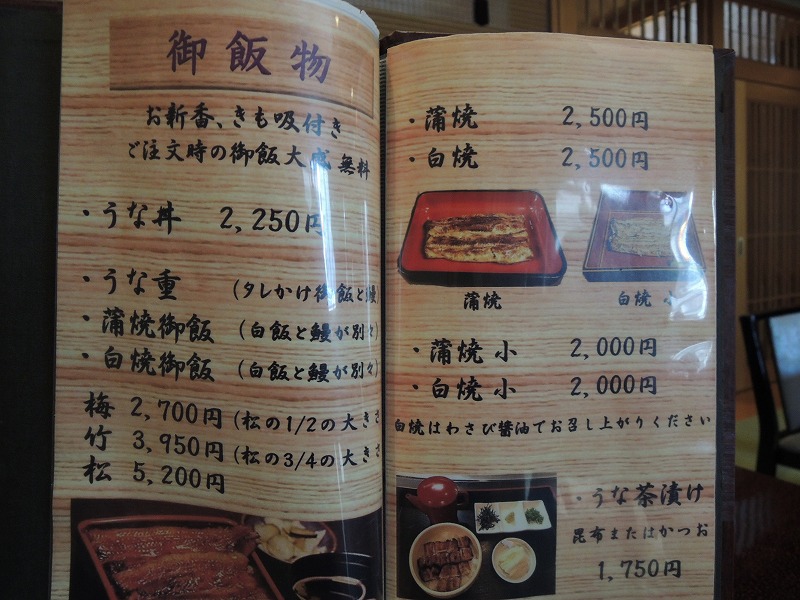 御飯物
お新香、きも吸付き
ご注文時の御飯大盛無料
・うな丼 2,250円
・うな重 (タレかけ御飯と鰻
・蒲焼御飯 (白飯と鰻が別々
・白焼御飯 (白飯と鰻が別々
梅 2,700円 (松の1/2の大きさ
竹 3,950円 (松の3/4の大きさ
松 5,200円
・蒲焼 2,500円
・白焼 2,500円
蒲焼 白焼 小
・蒲焼 小 2,000円
・白焼 小 2,000円
白焼はわさび醤油でお召し上がりください
・うな茶漬け
昆布またはかつお
1,750円